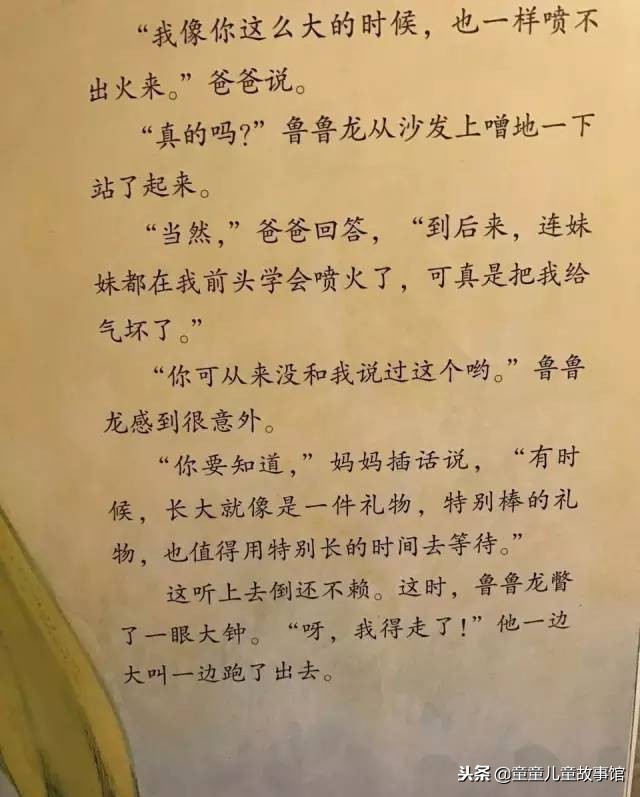 “我像你这么大的时候，也一样喷不
出火来。”爸爸说。
“真的吗？”鲁鲁龙从沙发上噌地一下
站了起来。
“当然，”爸爸回答，“到后来，连妹
妹都在我前头学会喷火了，可真是把我给
气坏了。”
“你可从来没和我说过这个哟。”鲁鲁
龙感到很意外。
“你要知道，”妈妈插话说，“有时
候，长大就像是一件礼物，特别棒的礼
物，也值得用特别长的时间去等待。”
这听上去倒还不赖。这时，鲁鲁龙瞥
了一眼大钟。“呀，我得走了！”他一边
大叫一边跑了出去。
头条 @童童儿童故事馆